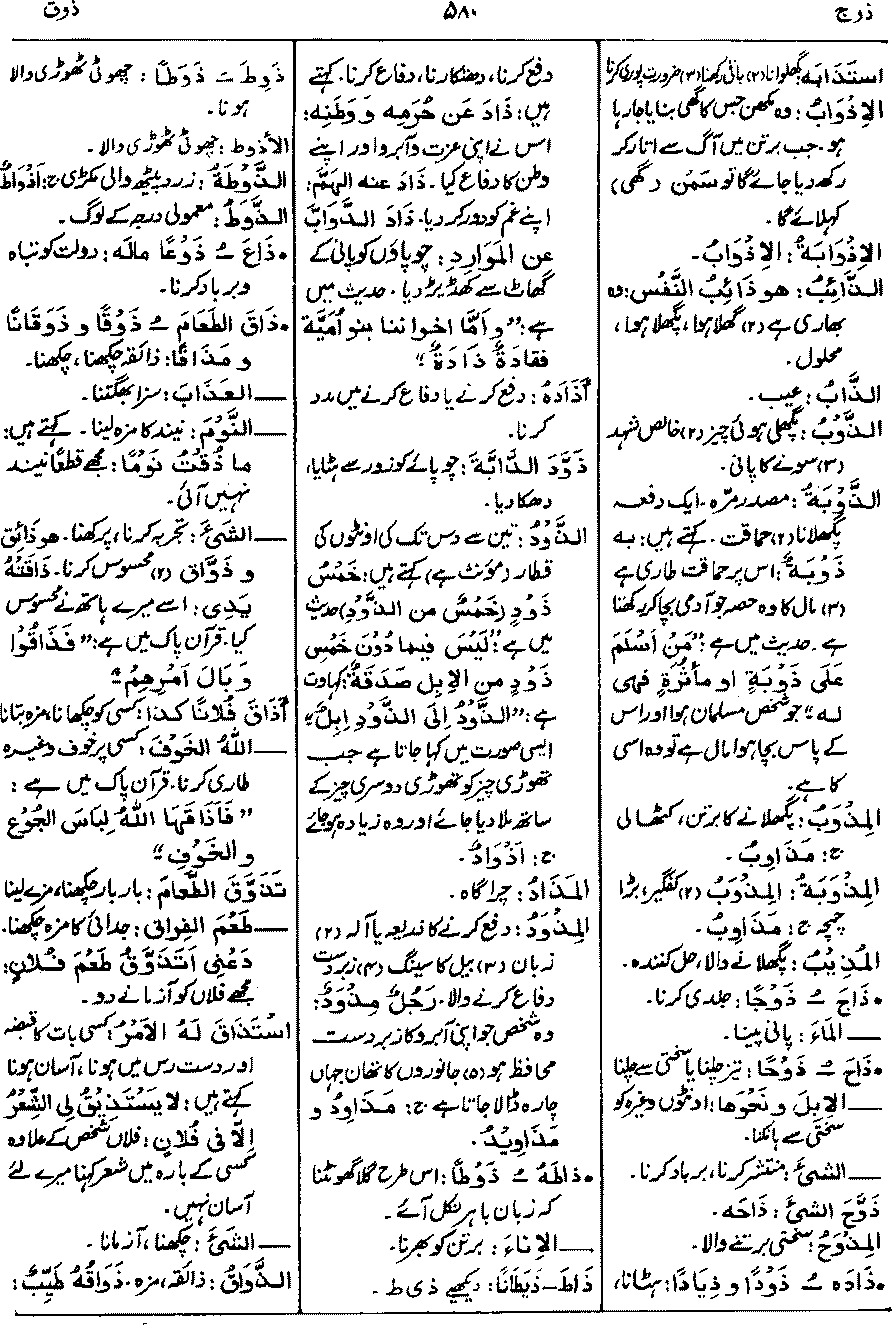 ذوج
۵۸۰
ذوق
استَذَابَه پگھلوانا (۲) باقی رکھنا (۳) ضرورت پوری کرنا
الإذْوَابُ: وہ مکھن جس کا گھی بنایا جا رہا
ہو۔ جب برتن میں آگ سے اتار کر
رکھ دیا جائے گا تو سَمَن (گھی)
کہلائے گا۔
الإذْوَابَةُ: الإذْوَابُ۔
الذَّائِبُ: هو ذائِبُ النَّفْسِ: وہ
بھاری ہے (۲) گھلا ہوا، پگھلا ہوا،
محلول۔
الذَّابُ: عیب۔
الذَّوْبُ: پگھلی ہوئی چیز (۲) خالص شہد
(۳) سونے کا پانی۔
الذَّوْبَةُ: مصدر مرّہ۔ ایک دفعہ
پگھلانا (۲) حماقت۔ کہتے ہیں: به
ذَوْبَةٌ: اس پر حماقت طاری ہے
(۳) مال کا وہ حصہ جو آدمی بچا کر رکھتا
ہے۔ حدیث میں ہے: "مَنْ أَسْلَمَ
عَلَى ذَوْبَةٍ او مأثُرَةٍ فهى
له" جو شخص مسلمان ہوا اور اس
کے پاس بچا ہوا مال ہے تو وہ اسی
کا ہے۔
المِذْوَبُ: پگھلانے کا برتن، کٹھالی
ج: مَذَاوِبُ۔
المِذْوَبَةُ: المِذْوَبُ (۲) کفگیر، بڑا
چمچہ ج: مَذَاوِبُ۔
المُذِيبُ: پگھلانے والا، حل کنندہ۔
•ذَاجَ ـُ ذَوْجًا: جلدی کرنا۔
— المَاءَ: پانی پینا۔
•ذَاحَ ـُ ذَوْحًا: تیز چلنا یا سختی سے چلنا
— الإبِلَ و نَحْوَهَا: اونٹوں وغیرہ کو
سختی سے ہانکنا۔
— الشىءَ: منتشر کرنا، برباد کرنا۔
ذَوَّحَ الشىءَ: ذَاحَه۔
المِذْوَحُ: سختی برتنے والا۔
•ذَادَه ـُ ذَوْدًا و ذِيَادًا: ہٹانا،
دفع کرنا، دھتکارنا، دفاع کرنا۔ کہتے
ہیں: ذَادَ عَن حُرَمِه و وَطَنِه:
اس نے اپنی عزت و آبرو اور اپنے
وطن کا دفاع کیا۔ ذَادَ عنه الهَمَّ:
اپنے غم کو دور کر دیا۔ ذَادَ الدَّوَابَّ
عن المَوَارِدِ: چوپاؤں کو پانی کے
گھاٹ سے کھدیڑ دیا۔ حدیث میں
ہے: "وَ أمَّا اخواننا بنو أميَّة
فقادةٌ ذَادَةٌ"
أذَادَهُ: دفع کرنے یا دفاع کرنے میں مدد
کرنا۔
ذَوَّدَ الدَّابَّةَ: چوپائے کو زور سے ہٹایا،
دھکا دیا۔
الذَّوْدُ: تین سے دس تک کی اونٹوں کی
قطار (مؤنث ہے) کہتے ہیں: خَمْسُ
ذَوْدٍ (خَمْسٌ من الذَّوْدِ) حدیث
میں ہے: "لَيْسَ فيما دُوْنَ خَمْسِ
ذَوْدٍ من الإبل صَدَقَةٌ" کہاوت
ہے: "الذَّوْدُ إلى الذَّوْدِ إبِلٌ"
ایسی صورت میں کہا جاتا ہے جب
تھوڑی چیز کو تھوڑی دوسری چیز کے
ساتھ ملا دیا جائے اور وہ زیادہ ہو جائے
ج: أذْوَادٌ۔
المَذَادُ: چراگاہ۔
المِذْوَدُ: دفع کرنے کا ذریعہ یا آلہ (۲)
زبان (۳) بیل کا سینگ (۴) زبردست
دفاع کرنے والا۔ رَجُلٌ مِذْوَدٌ:
وہ شخص جو اپنی آبرو کا زبردست
محافظ ہو (۵) جانوروں کا تھان جہاں
چارہ ڈالا جاتا ہے ج: مَذَاوِدُ و
مَذَاوِيدُ۔
•ذاطَهُ ـُ ذَوْطًا: اس طرح گلا گھونٹنا
کہ زبان باہر نکل آئے۔
— الإنَاءَ: برتن کو بھرنا۔
ذَاطَ – ذَيَطَانًا: دیکھیے ذی ط۔
ذَوِطَ ـَ ذَوَطًا: چھوٹی ٹھوڑی والا
ہونا۔
الأذْوط: چھوٹی ٹھوڑی والا۔
الذَّوْطَةُ: زرد پیٹھ والی مکڑی ج: أذْوَاطٌ
الذَّوَطُ: معمولی درجہ کے لوگ۔
•ذَاعَ ـُ ذَوْعًا مالَه: دولت کو تباہ
و برباد کرنا۔
•ذَاقَ الطَّعَامَ ـُ ذَوْقًا و ذَوَقَانًا
و مَذَاقًا: ذائقہ چکھنا، چکھنا۔
— العَذَابَ: سزا بھگتنا۔
— النَّوْمَ: نیند کا مزہ لینا۔ کہتے ہیں:
ما ذُقْتُ نَوْمًا: مجھے قطعاً نیند
نہیں آئی۔
— الشىءَ: تجربہ کرنا، پرکھنا۔ هو ذائق
و ذَوَّاق (۲) محسوس کرنا۔ ذَاقَتْهُ
يَدِى: اسے میرے ہاتھ نے محسوس
کیا۔ قرآن پاک میں ہے: "فَذَاقُوْا
وَبَالَ أمْرِهِمْ"
أذَاقَ فُلَانًا كذا: کسی کو چکھانا، مزہ بتانا
— اللهُ الخَوْفَ: کسی پر خوف وغیرہ
طاری کرنا۔ قرآن پاک میں ہے:
"فَأذَاقَهَا اللهُ لِبَاسَ الجُوْعِ
والخَوْفِ"
تَذَوَّقَ الطَّعَامَ: بار بار چکھنا، مزے لینا
— طَعْمَ الفِراقِ: جدائی کا مزہ چکھنا۔
دَعْنِى أتَذَوَّقُ طَعْمَ فُلَانٍ:
مجھے فلاں کو آزمانے دو۔
استَذَاقَ لَهُ الأمْرُ: کسی بات کا قبضہ
اور دست رس میں ہونا، آسان ہونا
کہتے ہیں: لا يَسْتَذِيْقُ لِى الشِّعْرُ
إلَّا فى فُلَانٍ: فلاں شخص کے علاوہ
کسی کے بارہ میں شعر کہنا میرے لئے
آسان نہیں۔
— الشىءَ: چکھنا، آزمانا۔
الذَّوَاقُ: ذائقہ، مزہ۔ ذَوَاقُهُ طَيِّبٌ: